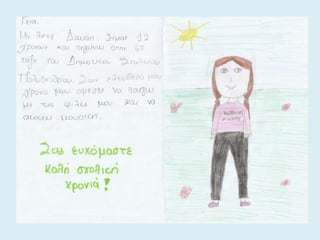 Γεια.
Με λένε Δανάη. Είμαι 12
χρονών και πηγαίνω στην ΣΤ'
τάξη του Δημοτικού Σχολείου
Πολυδενδρίου. Στον ελεύθερο μου
χρόνο μου αρέσει να παίζω
με τις φίλες μου και να
ακούω μουσική.
Σας ευχόμαστε
καλή σχολική
χρονιά!